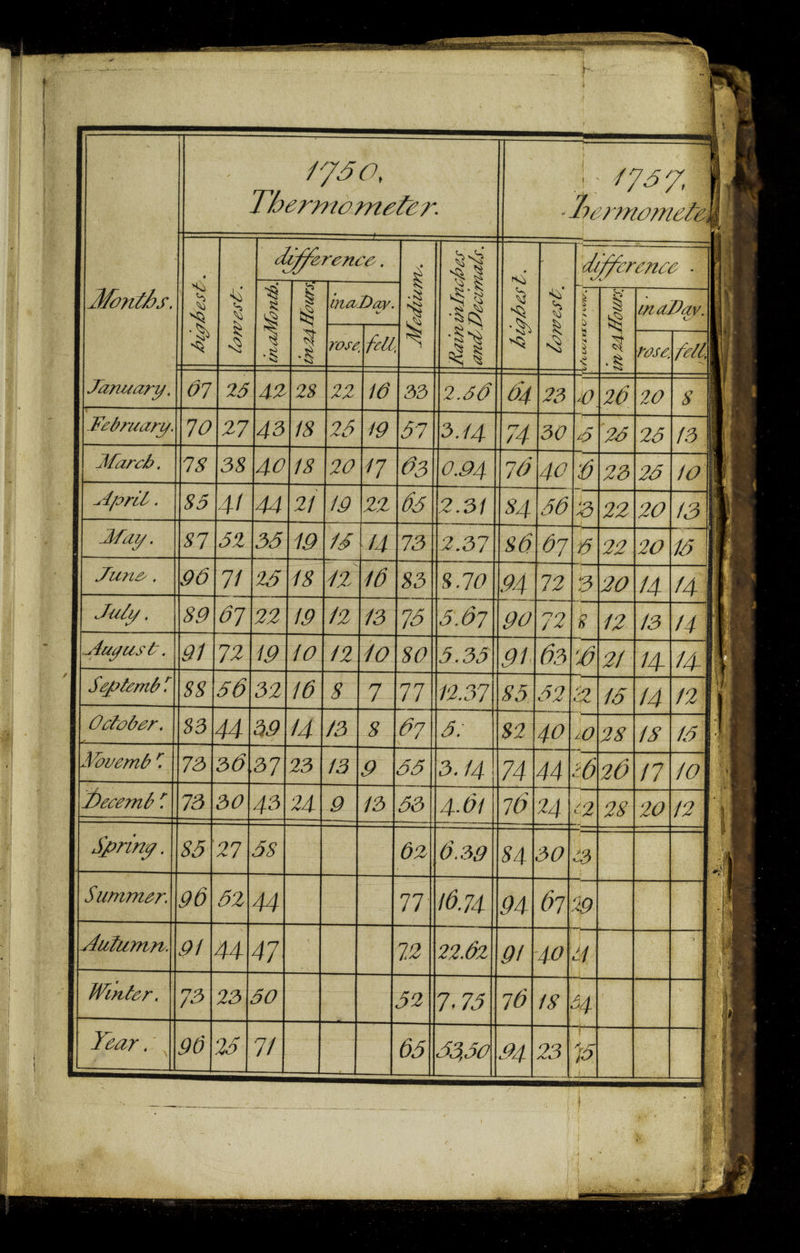 1750, 1757,
Thermometer. Thermomete
Months. highest. lowest. difference. Medium. Rain in Inches and Decimals. highest. lowest. difference.
in a Month. in 24 Hours in a Day. in 24 Hours in a Day.
rose. fell. rose. fell.
January. 67 25 42 28 22 16 33 2.56 64 23 26 20 8
February. 70 27 43 18 25 19 57 3.14 74 30 25 25 13
March. 78 38 40 18 20 17 63 0.94 76 40 6 23 25 10
April. 85 41 44 21 19 22 65 2.31 84 56 3 22 20 13
May. 87 52 35 19 15 14 73 2.37 86 67 22 20 15
June. 96 71 25 18 12 16 83 8.70 94 72 3 20 14 14
July. 89 67 22 19 12 13 75 5.67 90 72 8 12 13 14
August. 91 72 19 10 12 10 80 5.35 91 63 21 14 14
Septembr. 88 56 32 16 8 7 77 12.37 85 52 2 15 14 12
October. 83 44 39 14 13 8 67 5. 82 40 0 28 18 15
Novembr. 73 36 37 23 13 9 55 3.14 74 44 6 26 17 10
Decembr. 73 30 43 24 9 13 53 4.61 76 24 2 28 20 12
Spring. 85 27 58 62 6.39 84 30 3
Summer. 96 52 44 77 16.74 94 67 9
Autumn. 91 44 47 72 22.62 91 40
Winter. 73 23 50 52 7.75 76 18 4
Year. 96 25 71 65 53,50 94 23